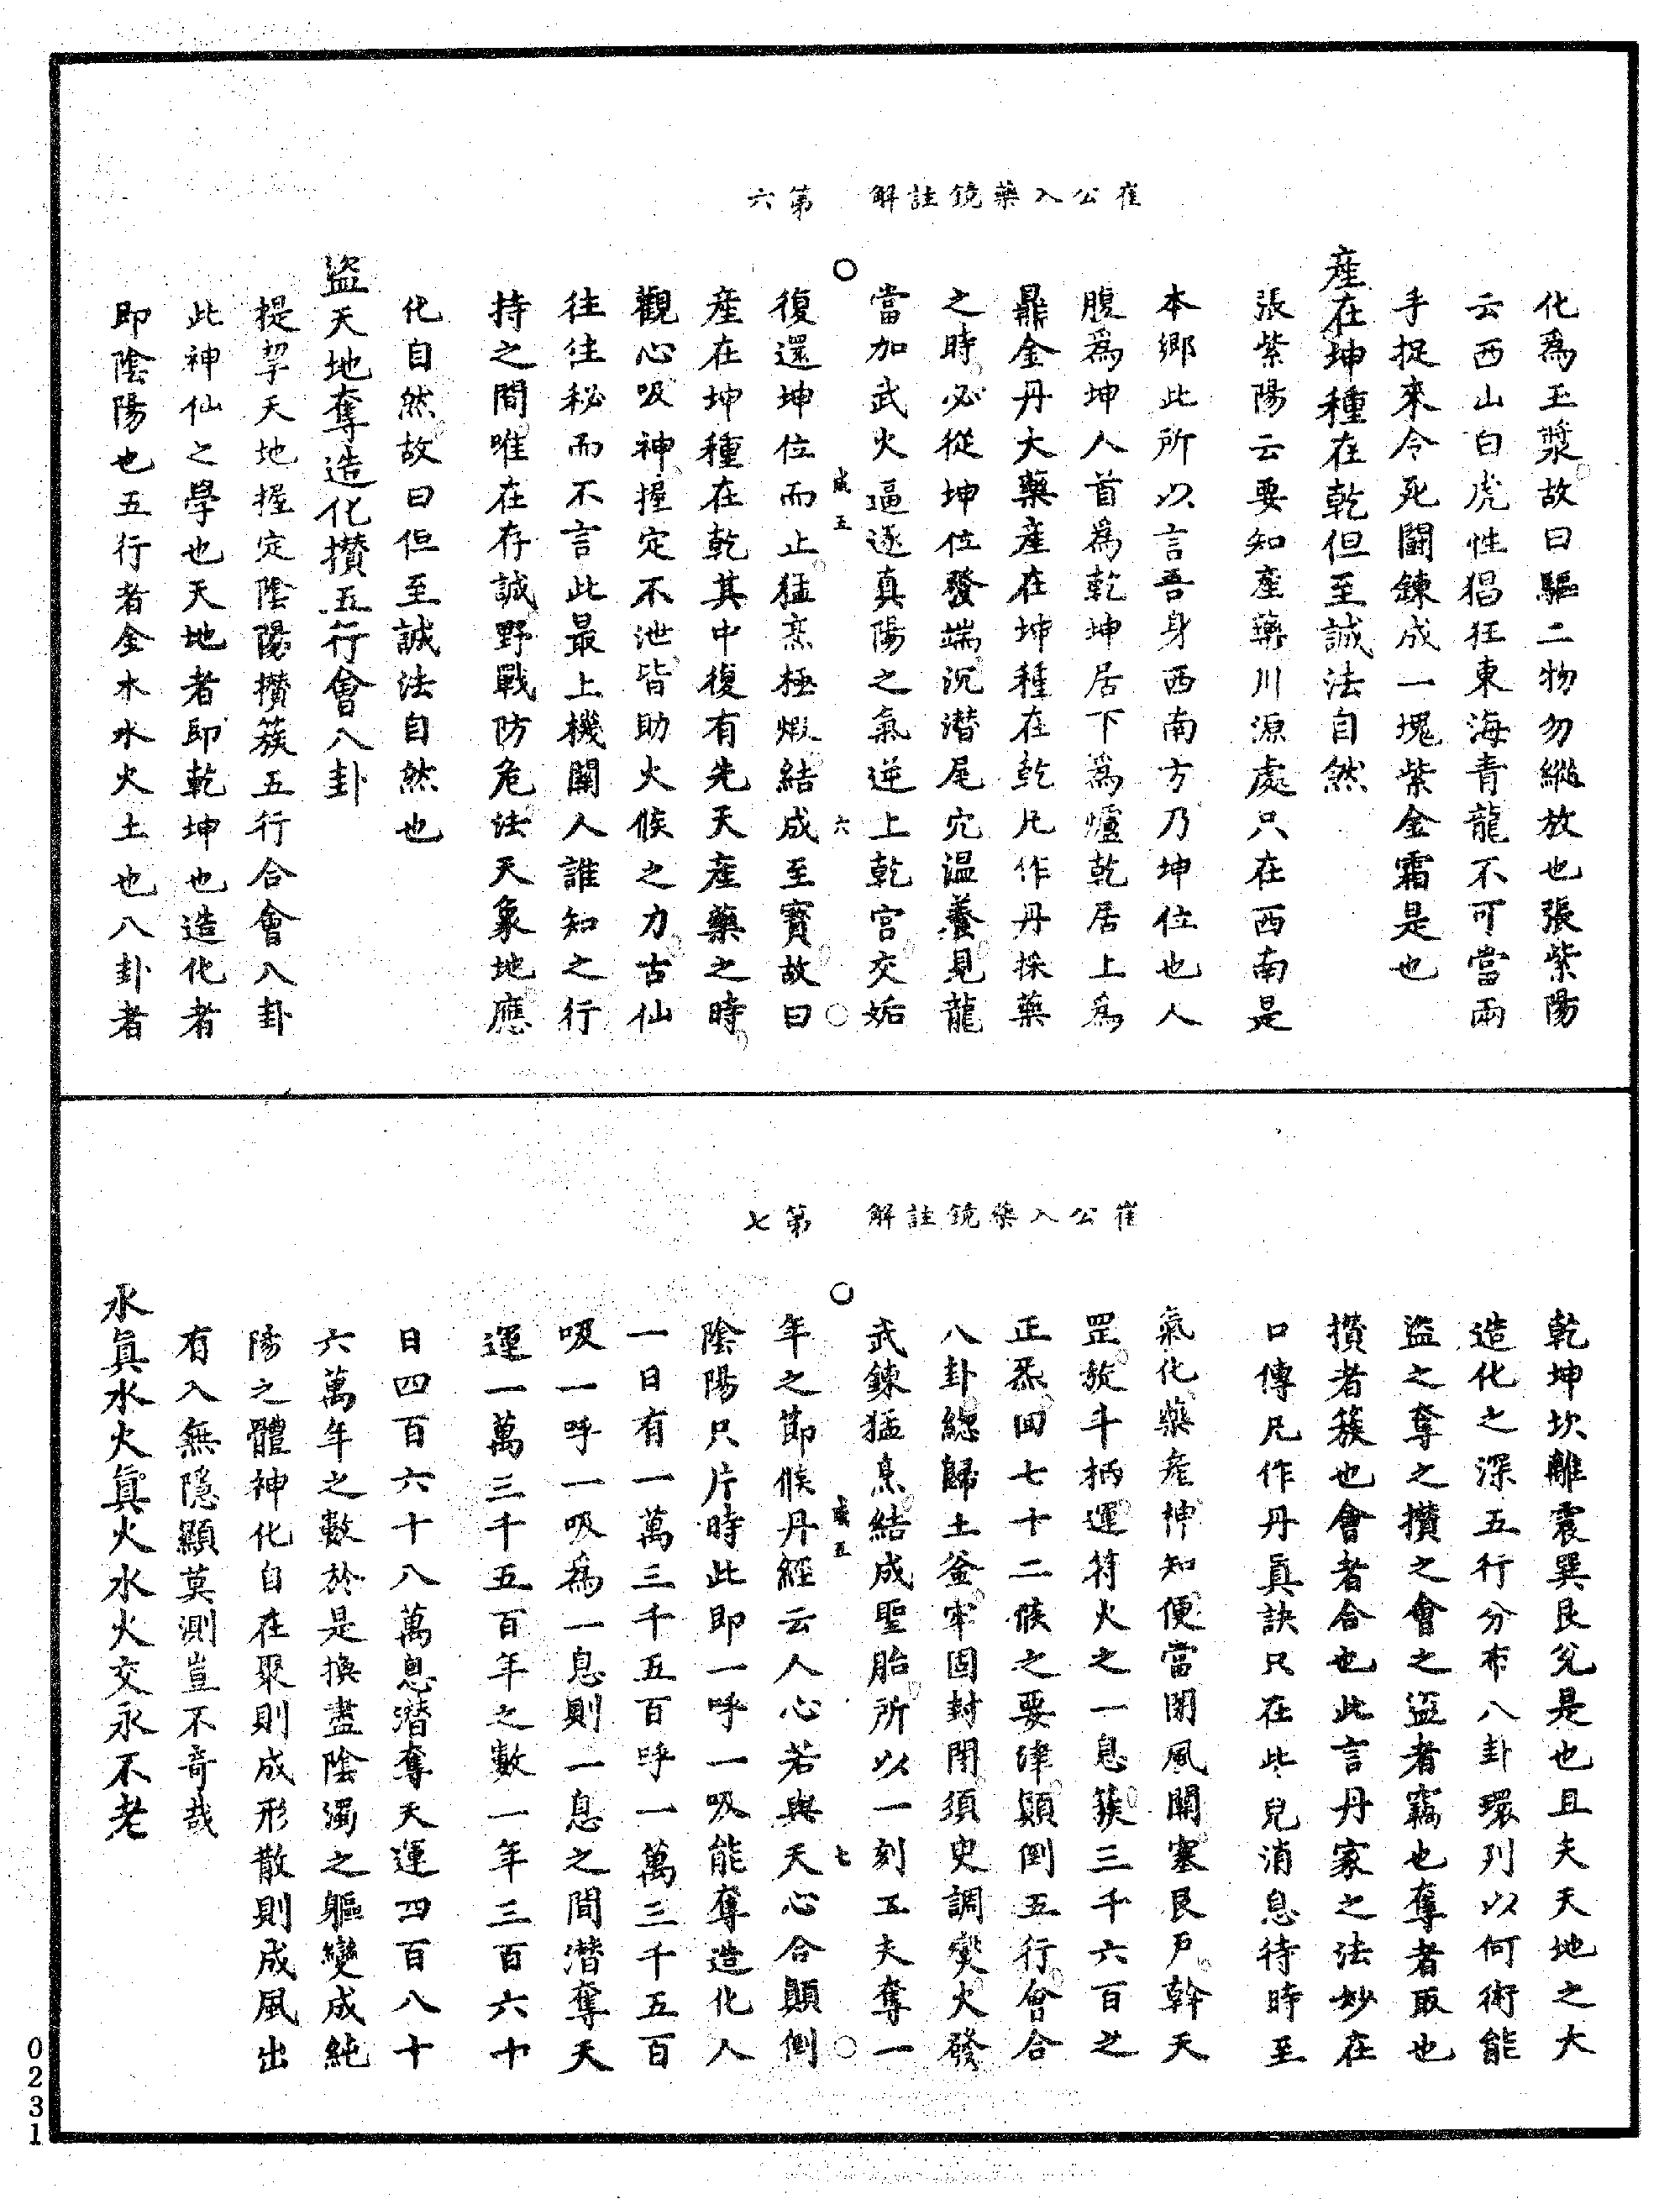 崔公入藥鏡註解　第六
化爲玉漿故曰驅二物勿縱放也張紫陽
云西山白虎性猖狂東海青龍不可當兩
手捉來令死鬭鍊成一塊紫金霜是也
産在坤種在乾但至誠法自然
張紫陽云要知産藥川源處只在西南是
本鄉此所以言吾身西南方乃坤位也人
腹爲坤人首爲乾坤居下爲爐乾居上爲
鼎金丹大藥産在坤種在乾凡作丹採藥
之時必從坤位發端沉潛尾穴温養見龍
當加武火逼逐真陽之氣逆上乾宫交姤
咸五　六
復還坤位而止猛烹極煅結成至寳故曰
産在坤種在乾其中復有先天産藥之時
觀心吸神握定不泄皆助火候之力古仙
往往秘而不言此最上機關人誰知之行
持之間唯在存誠野戰防危法天象地應
化自然故曰但至誠法自然也
盜天地奪造化攢五行會八卦
提挈天地握定陰陽攢簇五行合會八卦
此神仙之學也天地者即乾坤也造化者
即陰陽也五行者金木水火土也八卦者
崔公入藥鏡註解　第七
乾坤坎離震巽艮兌是也且夫天地之大
造化之深五行分布八卦環列以何術能
盜之奪之攢之會之盜者竊也奪者取也
攢者簇也會者合也此言丹家之法妙在
口傳凡作丹眞訣只在些兒消息待時至
氣化藥産神知便當閉風關塞艮戶斡天
罡旋斗柄運符火之一息簇三千六百之
正炁回七十二候之要津顛倒五行會合
八卦緫歸土釜牢固封閉須臾調燮火發
武鍊猛烹結成聖胎所以一刻工夫奪一
咸五　七
年之節候丹經云人心若與天心合顛倒
陰陽只片時此即一呼一吸能奪造化人
一日有一萬三千五百呼一萬三千五百
吸一呼一吸爲一息則一息之間潛奪天
運一萬三千五百年之數一年三百六十
日四百六十八萬息潛奪天運四百八十
六萬年之數於是換盡陰濁之軀變成純
陽之體神化自在聚則成形散則成風出
有入無隱顯莫測豈不奇哉
水眞水火眞火水火交永不老
0231